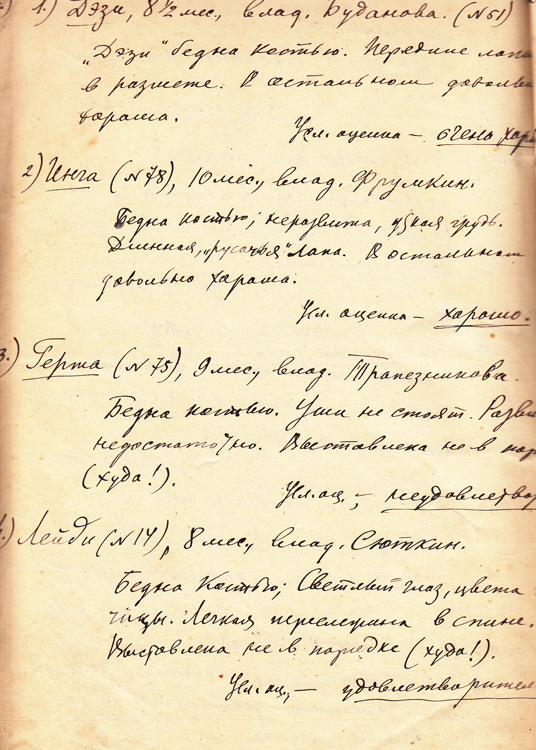 1.) Дэзи, 8 1/2 мес., влад. Буданова. (N 61)
„Дэзи" бедна костью. Передние лапы
в размете. В остальном доволь
хороша.
Усл. оценка – очень хор
2) Инга (N 78), 10 мес., влад. Фрумкин.
Бедна костью; неразвита, узкая грудь.
Длинная, „русачья" лапа. В остальном
довольно хороша.
Усл. оценка – хорошо.
3.) Герта (N 75), 9 мес., влад. Трапезникова.
Бедна костью. Уши не стоят. Разви
недостаточно. Выставлена не в пор
(худа!).
Усл. оц., – неудовлетвор
4.) Лейди (N 14), 8 мес., влад. Сюткин.
Бедна костью; Светлый глаз, цвета
птицы. Легкая переслежина в спине.
Выставлена не в порядке (худа!).
Усл. оц., – удовлетворител